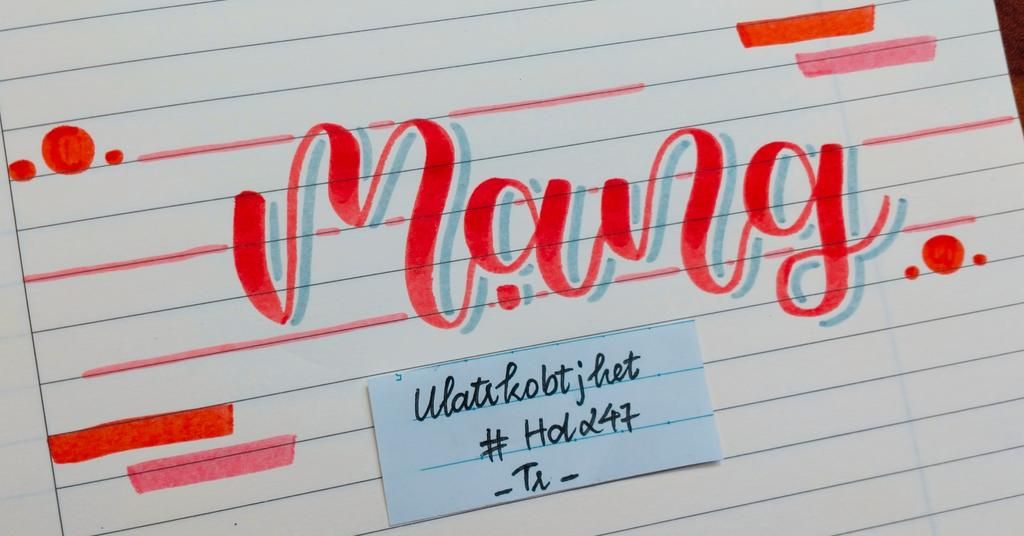 Mạng
Ulatikobtjhet
# Hdd247
- Tr -